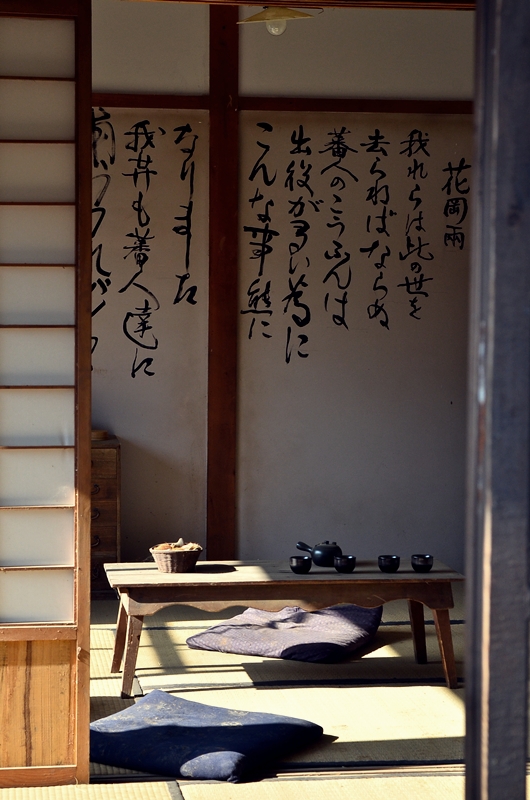 花岡兩
我れらは此の世を
去らねばならぬ
蕃人のこうふんは
出役が多い為に
こんな事態に
なりました
我等も蕃人達に